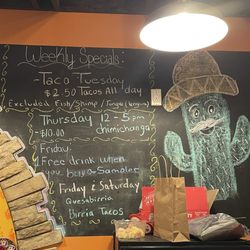 Weekly Specials:
-Taco Tuesday
$2.50 Tacos All day
Excluded Fish/Shrimp/Tongue (lengua)
Thursday 12-5pm
-$10.00 chimichanga
Friday
Free drink when
you buy a Sampler
Friday & Saturday
Quesabirria
Birria Tacos